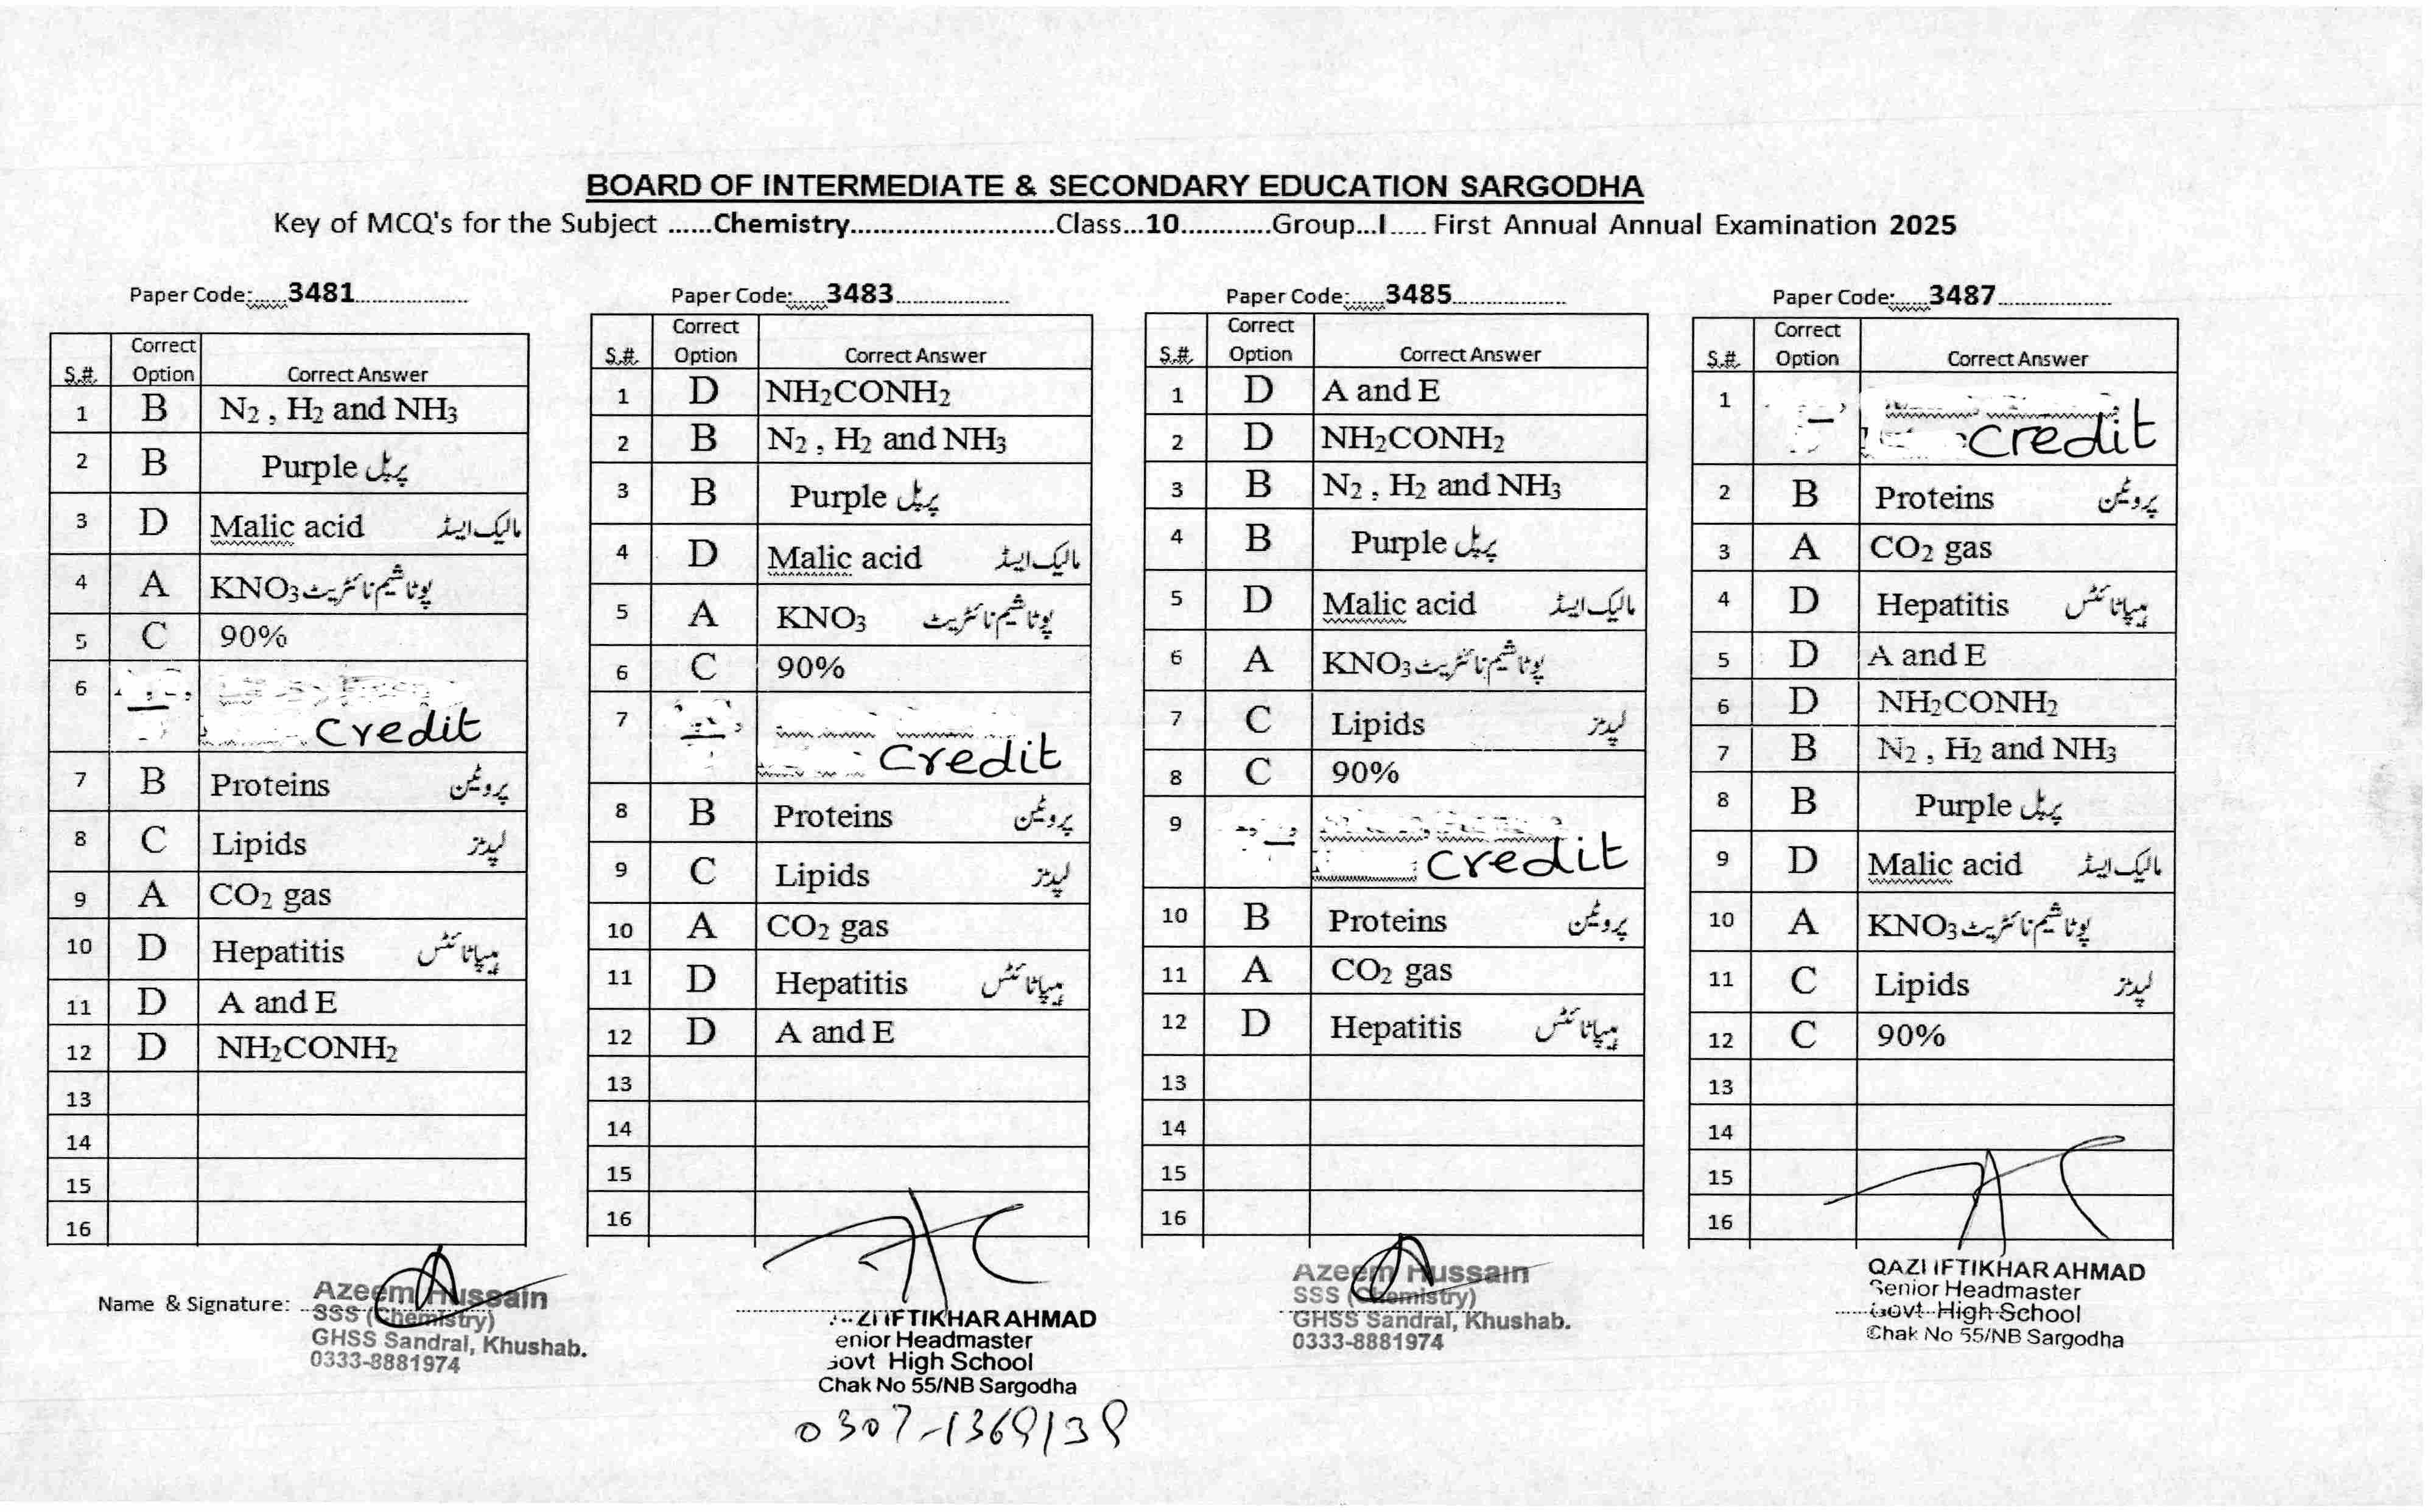 BOARD OF INTERMEDIATE & SECONDARY EDUCATION SARGODHA
Key of MCQ's for the Subject ......Chemistry...........................Class...10............Group...I..... First Annual Annual Examination 2025
Paper Code:......3481...................
S.#. Correct Option Correct Answer
1 B N₂ , H₂ and NH₃
2 B Purple پرپل
3 D Malic acid مالیک ایسڈ
4 A KNO₃ پوٹاشیم نائٹریٹ
5 C 90%
6 — Credit
7 B Proteins پروٹین
8 C Lipids لپڈز
9 A CO₂ gas
10 D Hepatitis ہیپاٹائٹس
11 D A and E
12 D NH₂CONH₂
13
14
15
16
Paper Code:......3483...................
S.#. Correct Option Correct Answer
1 D NH₂CONH₂
2 B N₂ , H₂ and NH₃
3 B Purple پرپل
4 D Malic acid مالیک ایسڈ
5 A KNO₃ پوٹاشیم نائٹریٹ
6 C 90%
7 — Credit
8 B Proteins پروٹین
9 C Lipids لپڈز
10 A CO₂ gas
11 D Hepatitis ہیپاٹائٹس
12 D A and E
13
14
15
16
Paper Code:......3485...................
S.#. Correct Option Correct Answer
1 D A and E
2 D NH₂CONH₂
3 B N₂ , H₂ and NH₃
4 B Purple پرپل
5 D Malic acid مالیک ایسڈ
6 A KNO₃ پوٹاشیم نائٹریٹ
7 C Lipids لپڈز
8 C 90%
9 — Credit
10 B Proteins پروٹین
11 A CO₂ gas
12 D Hepatitis ہیپاٹائٹس
13
14
15
16
Paper Code:......3487...................
S.#. Correct Option Correct Answer
1 — Credit
2 B Proteins پروٹین
3 A CO₂ gas
4 D Hepatitis ہیپاٹائٹس
5 D A and E
6 D NH₂CONH₂
7 B N₂ , H₂ and NH₃
8 B Purple پرپل
9 D Malic acid مالیک ایسڈ
10 A KNO₃ پوٹاشیم نائٹریٹ
11 C Lipids لپڈز
12 C 90%
13
14
15
16
Name & Signature:
Azeem Hussain
SSS (Chemistry)
GHSS Sandral, Khushab.
0333-8881974
IFTIKHAR AHMAD
enior Headmaster
Govt High School
Chak No 55/NB Sargodha
0307-1369139
Azeem Hussain
SSS (Chemistry)
GHSS Sandral, Khushab.
0333-8881974
QAZI IFTIKHAR AHMAD
Senior Headmaster
Govt High School
Chak No 55/NB Sargodha